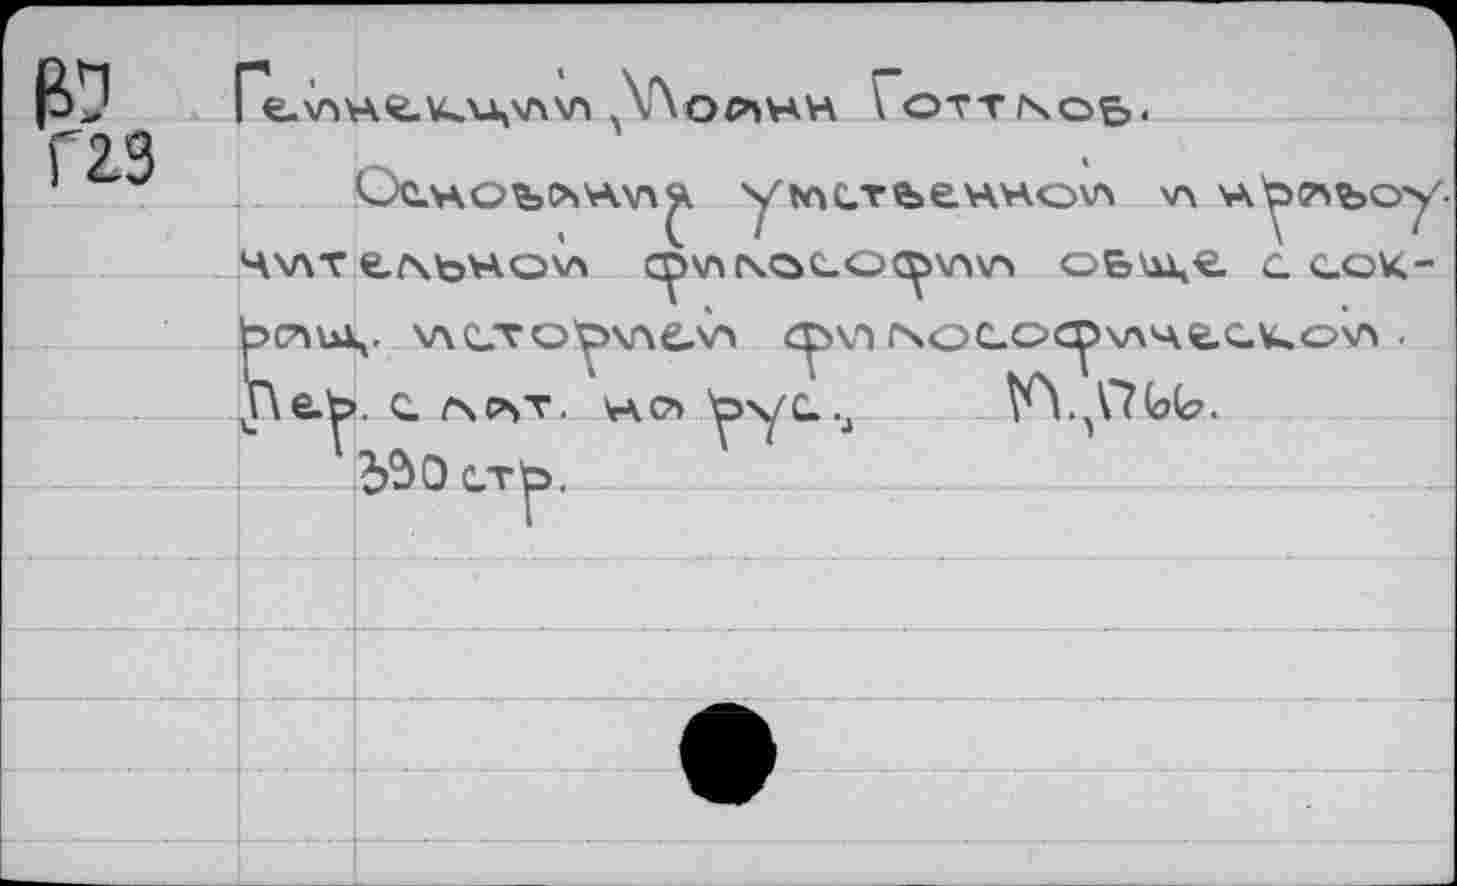 ВЭ Гейнекций, Иоганн Готтлоб.
Г23
Основания умственной и нравоу-
чительной философии обще с сок-
ращ. историей философической.
Пер. с лат. на рус., М. 1766.
330 стр.